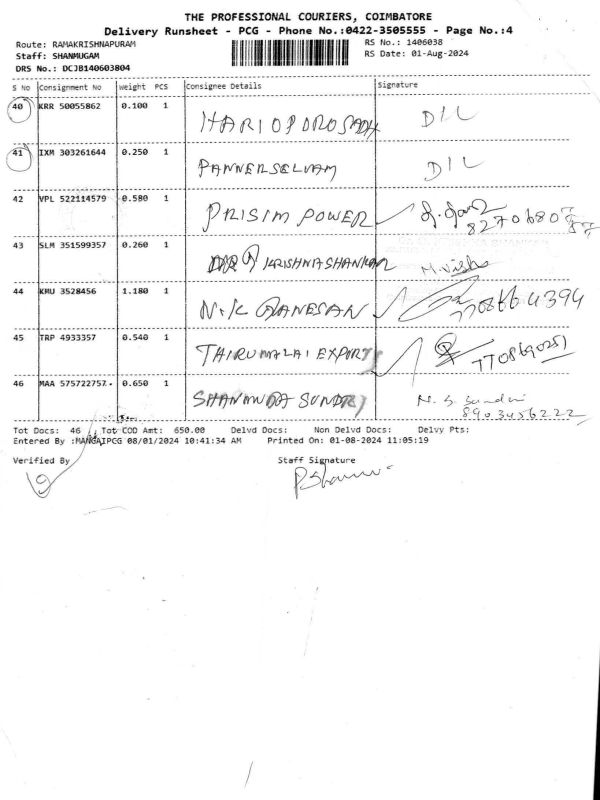 THE PROFESSIONAL COURIERS, COIMBATORE
Delivery Runsheet - PCG - Phone No.:0422-3505555 - Page No.:4
Route: RAMAKRISHNAPURAM
RS No.: 1406038
Staff: SHANMUGAM
RS Date: 01-Aug-2024
DRS No.: DCJB140603804
S No Consignment No Weight PCS Consignee Details Signature
40 KRR 50055862 0.100 1 HARIOPDROSADH DIL
41 IXM 303261644 0.250 1 PANNERSELVAM DIL
42 VPL 522114579 0.580 1 PRISIM POWER
43 SLM 351599357 0.260 1 KRISHNASHANKAR M.Vishu
44 KMU 3528456 1.180 1 N.K GANESAN
45 TRP 4933357 0.540 1 THIRUMALAI EXPORTS 7708690251
46 MAA 575722757 0.650 1 SHANMUGA SUNDRJ N. S. Sundri
8903456222
Tot Docs: 46 Tot COD Amt: 650.00 Delvd Docs: Non Delvd Docs: Delvy Pts:
Entered By :MANGAIPCG 08/01/2024 10:41:34 AM Printed On: 01-08-2024 11:05:19
Verified By Staff Signature